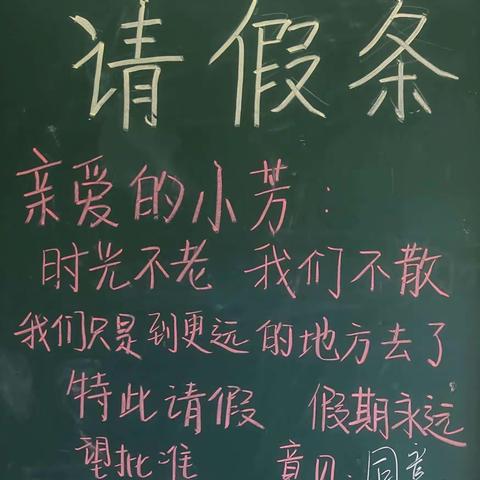 请假条
亲爱的小芳：
时光不老 我们不散
我们只是到更远的地方去了
特此请假 假期永远
望批准 意见：同意